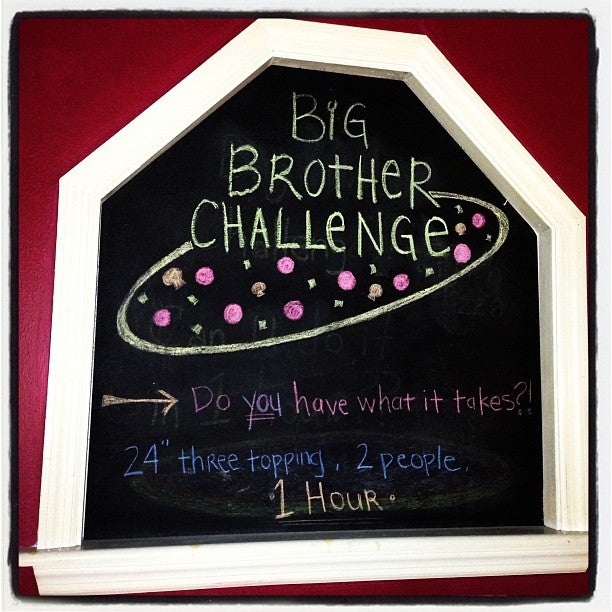 BiG
BROTHER
CHALLENGE
Do you have what it takes?!
24" three topping. 2 people.
1 HOUR